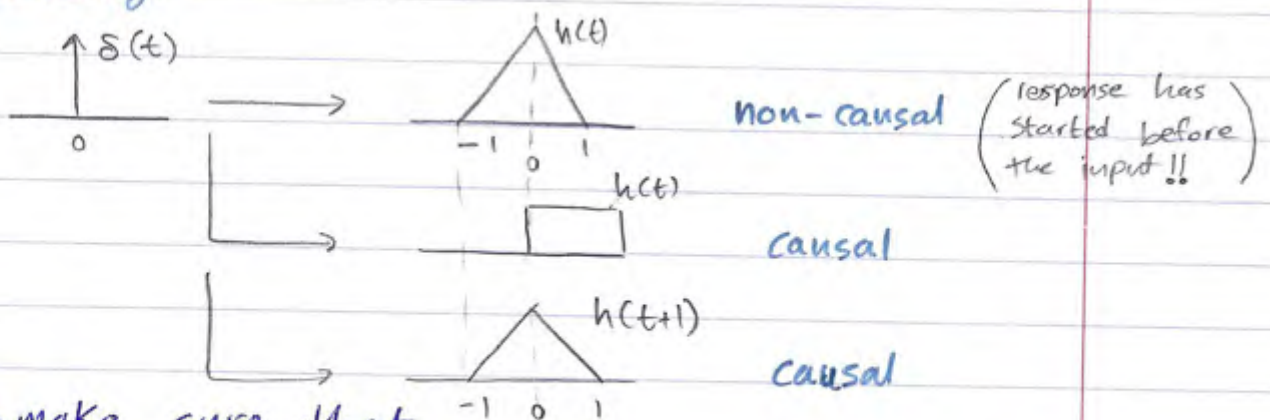 δ(t)
0
h(t)
-1 0 1
non-causal
(response has
started before
the input!!)
h(t)
causal
h(t+1)
-1 0 1
causal
make sure that